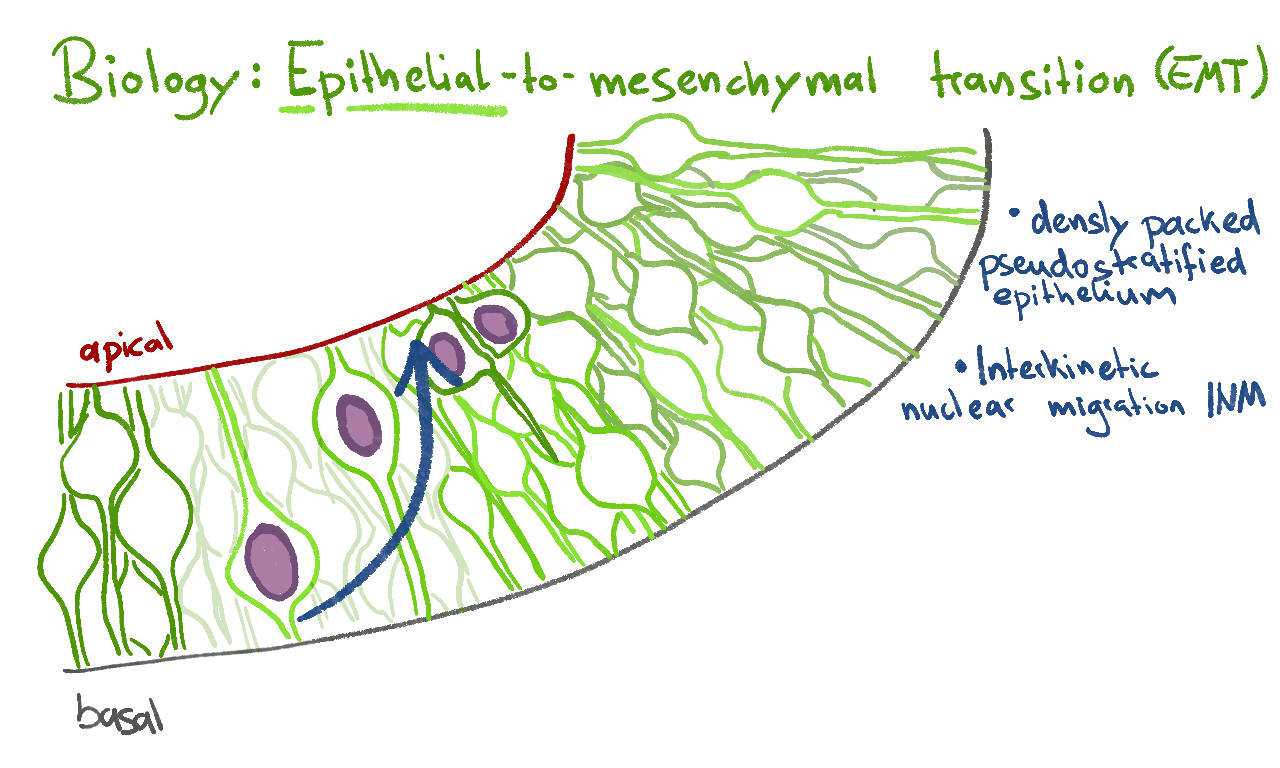 Biology: Epithelial-to-mesenchymal transition (EMT)
apical
• densly packed
pseudostratified
epithelium
• Interkinetic
nuclear migration INM
basal